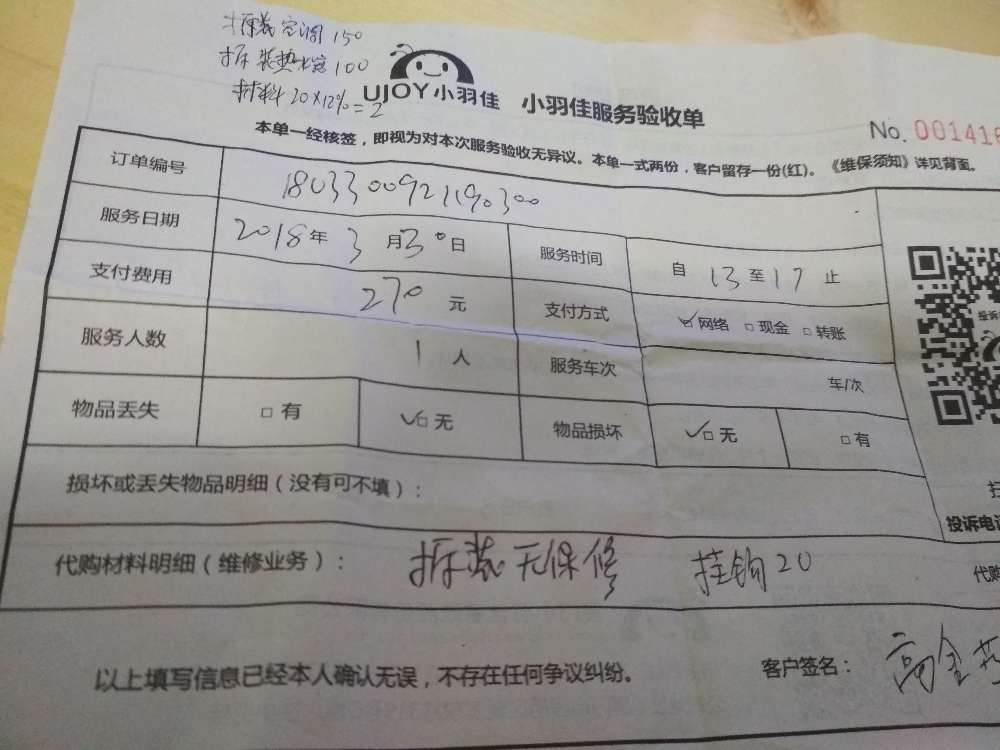 拆装空调150
拆装热水器100
材料20×12%=2
UJOY小羽佳 小羽佳服务验收单
No. 001416
本单一经核签，即视为对本次服务验收无异议。本单一式两份，客户留存一份(红)。《维保须知》详见背面。
订单编号
服务日期 2018年3月30日 服务时间 自13至17止
支付费用 270元 支付方式 ☑网络 □现金 □转账
服务人数 1人 服务车次 车/次
物品丢失 □有 ✓□无 物品损坏 ✓□无 □有
损坏或丢失物品明细（没有可不填）：
投诉电
代购材料明细（维修业务）： 拆装无保修 挂钩20 代购
以上填写信息已经本人确认无误，不存在任何争议纠纷。 客户签名： 高金